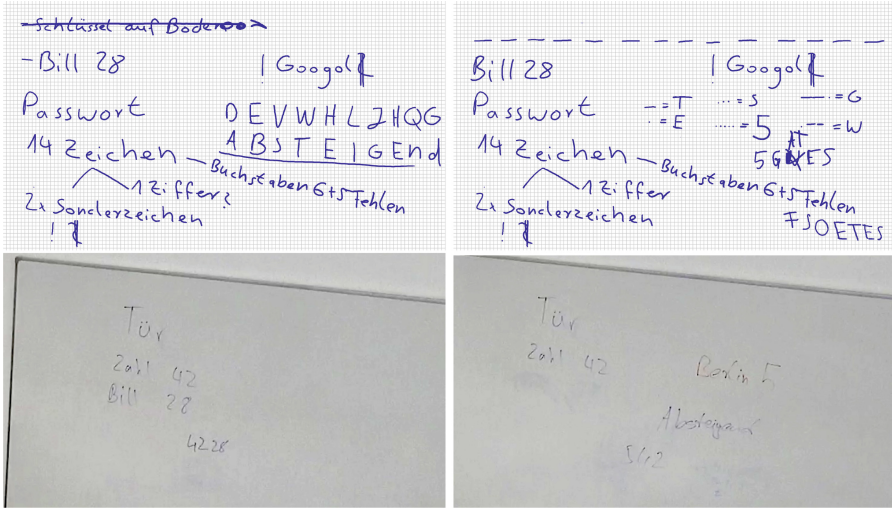 - Schlüssel auf Boden
- Bill 28
! Googol
Passwort
DEVWHLJHQG
ABSTEIGEnd
14 Zeichen - Buchstaben 6+5 Fehlen
1 Ziffer?
2x Sonderzeichen
!
Bill 28
! Googol
Passwort
-- = T
.... = S
= G
. = E
..... = 5
.-- = W
14 Zeichen - Buchstaben 6+5 Fehlen
5G ES
AT
1 Ziffer
2x Sonderzeichen
!
FSOETES
Tür
Zahl 42
Bill 28
4228
Tür
Zahl 42
Berlin 5
Absteigend
542